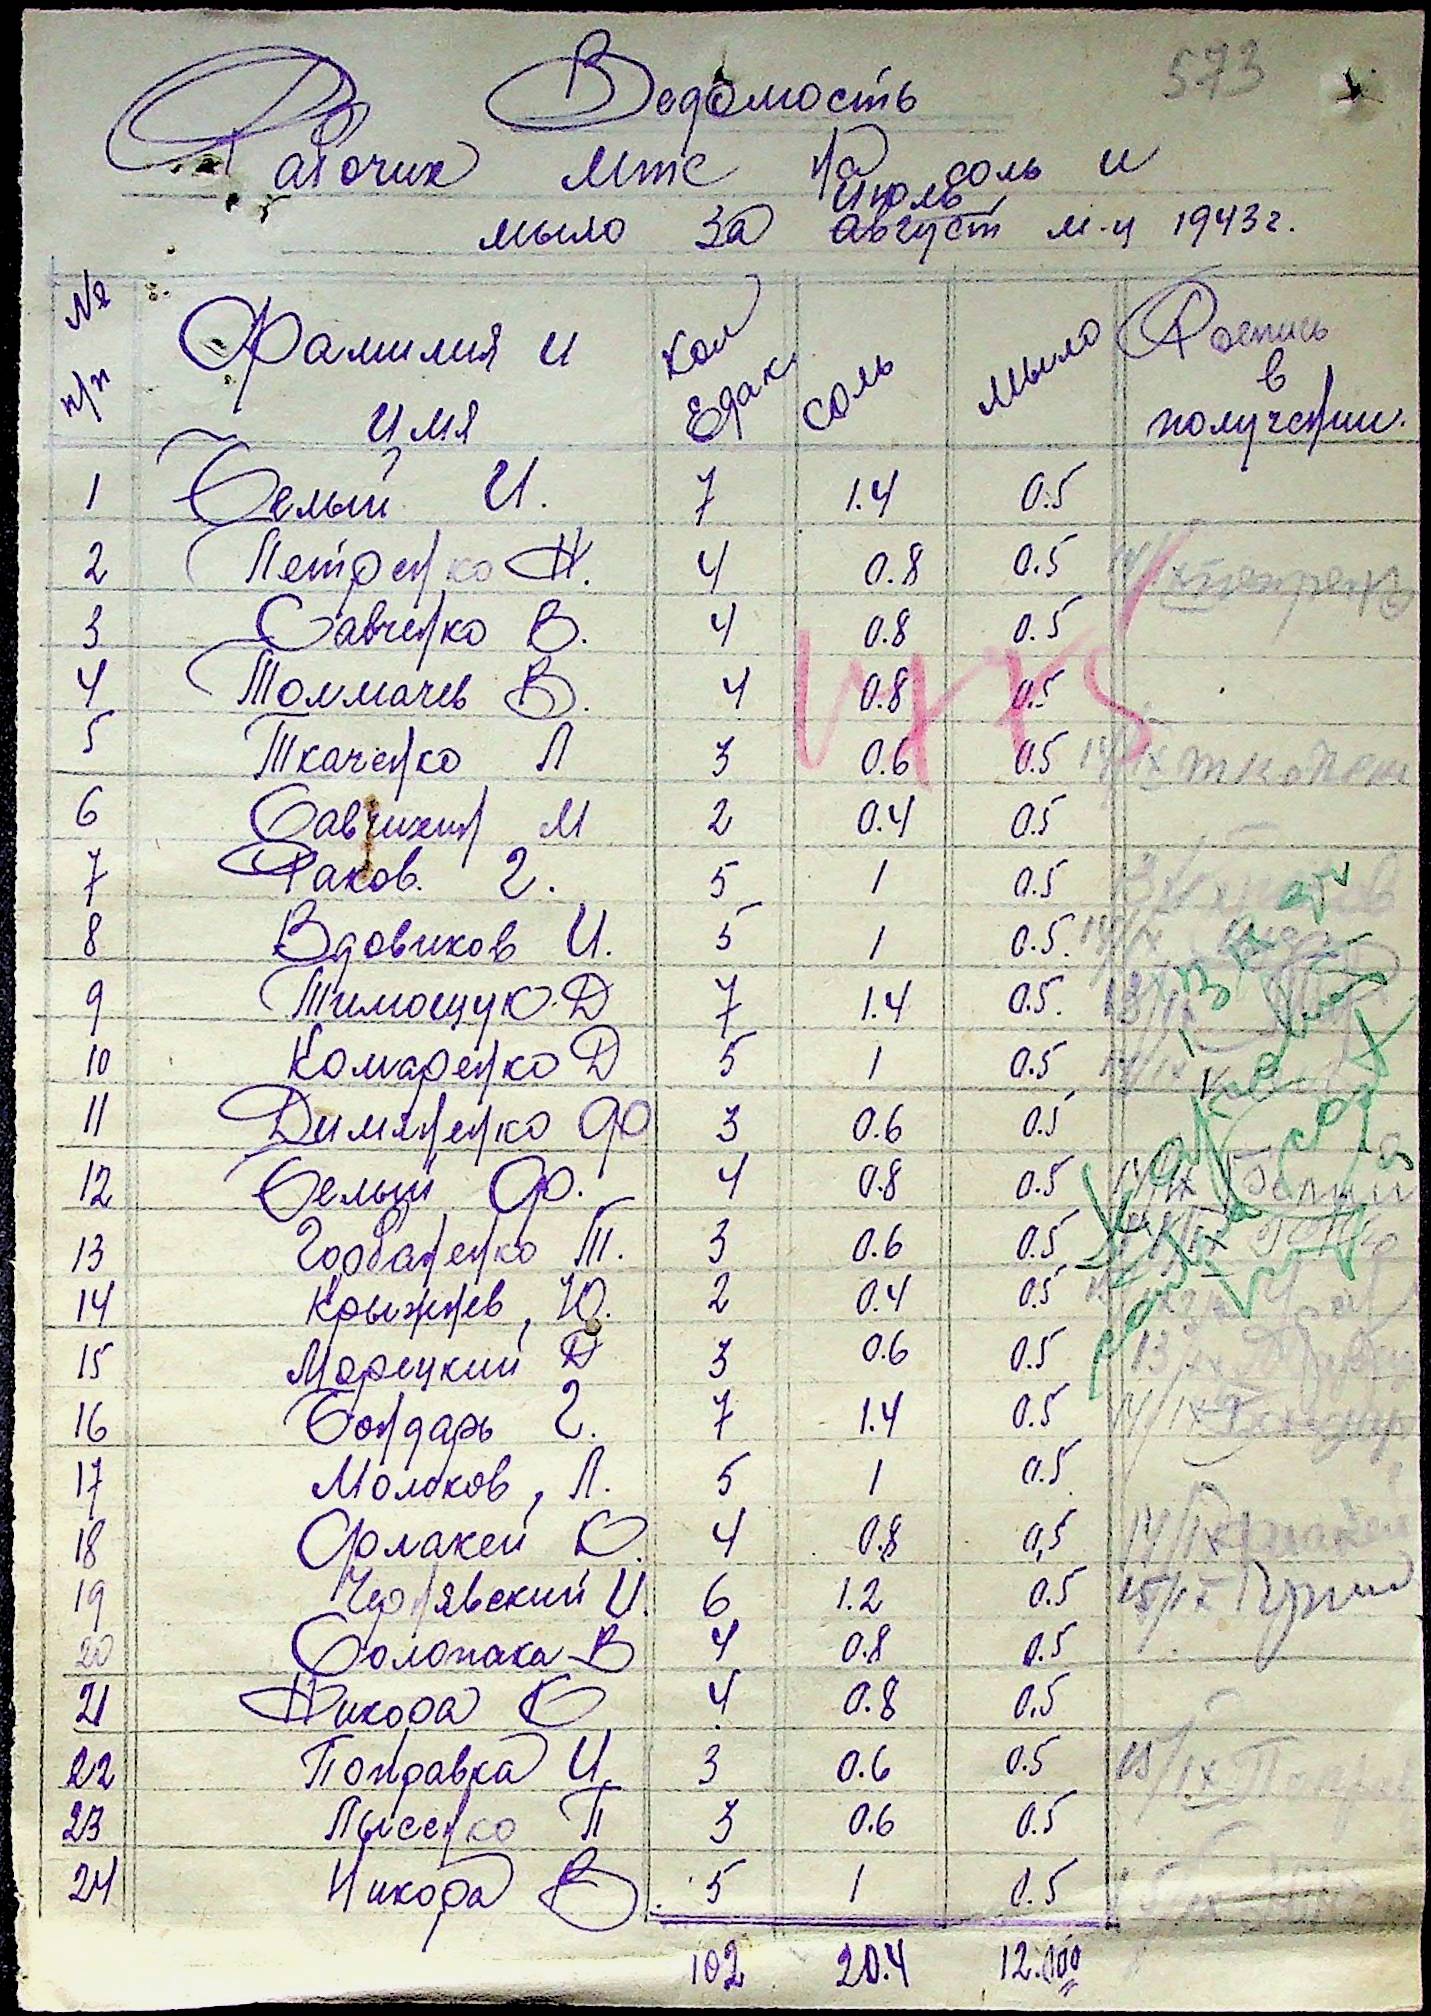 573
Ведомость
Рабочих мтс на соль и
июль
мыло за август м-ц 1943 г.
№ п/п Фамилия и имя Кол Едак. соль мыло Роспись в получении.
1 Белый И. 7 1.4 0.5
2 Петренко Н. 4 0.8 0.5 14/IX Петренко
3 Савченко В. 4 0.8 0.5
4 Толмачев В. 4 0.8 0.5
5 Ткаченко Л 3 0.6 0.5 14/IX
6 Савчихин М 2 0.4 0.5
7 Раков. Г. 5 1 0.5
8 Вдовиков И. 5 1 0.5. 14/IX
9 Тимощук Д 7 1.4 0.5. 13/IX
10 Комаренко Д 5 1 0.5 14/IX
11 Димяненко Ф 3 0.6 0.5
12 Белый Ф. 4 0.8 0.5 14/IX Белый
13 Горбаненко Т. 3 0.6 0.5
14 Крыжнев, Ю. 2 0.4 0.5
15 Марецкий Д 3 0.6 0.5 13/IX
16 Бондарь Г. 7 1.4 0.5 14/IX Бондарь
17 Молоков, Л. 5 1 0.5
18 Орлакей К. 4 0.8 0,5 14/IX
19 Чернявский И. 6 1.2 0.5 15/IX
20 Солопака В 4 0.8 0.5
21 Никора К 4 0.8 0.5
22 Поправка И. 3 0.6 0.5 15/IX
23 Лысенко П 3 0.6 0.5
24 Никора В 5 1 0.5
102 20.4 12.000